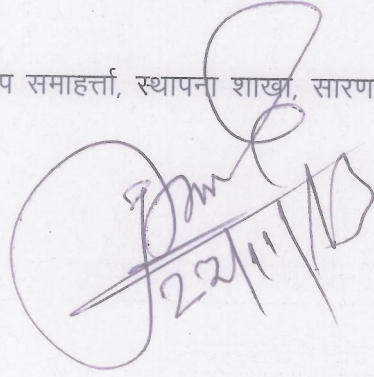 प समाहर्त्ता, स्थापना शाखा, सारण
22/11/13